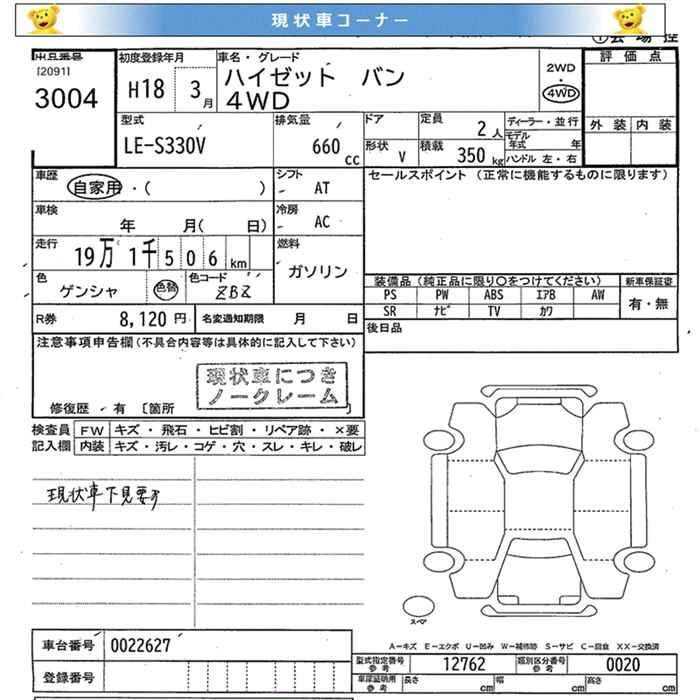 現状車コーナー
出品番号
[2091]
3004
初度登録年月
H18 3月
車名・グレード
ハイゼット バン
4WD
2WD
・
4WD
評価点
外装 内装
型式
LE-S330V
排気量
660 cc
ドア
定員
2人
ディーラー・並行
モデル年式 年
形状
V
積載
350 kg
ハンドル 左・右
車歴
自家用・( )
シフト
AT
セールスポイント (正常に機能するものに限ります)
車検
年 月( 日)
冷房
AC
走行
19万 1千506km
燃料
ガソリン
色
ゲンシャ
色替
色コード
R券
8,120円
名変通知期限 月 日
装備品(純正品に限り○をつけてください) 新車保証書
PS PW ABS エアB AW
SR ナビ TV カワ
有・無
後日品
注意事項申告欄(不具合内容等は具体的に記入して下さい)
現状車につき
ノークレーム
修復歴・有 [箇所
検査員 FW キズ・飛石・ヒビ割・リペア跡・×要
記入欄 内装 キズ・汚レ・コゲ・穴・スレ・キレ・破レ
現状車下見要す
スペア
A=キズ E=エクボ U=凹み W=補修跡 S=サビ C=腐食 XX=交換済
車台番号 0022627
登録番号
型式指定番号 参考 12762 類別区分番号 参考 0020
車庫証明用 参考 長さ cm 幅 cm 高さ cm